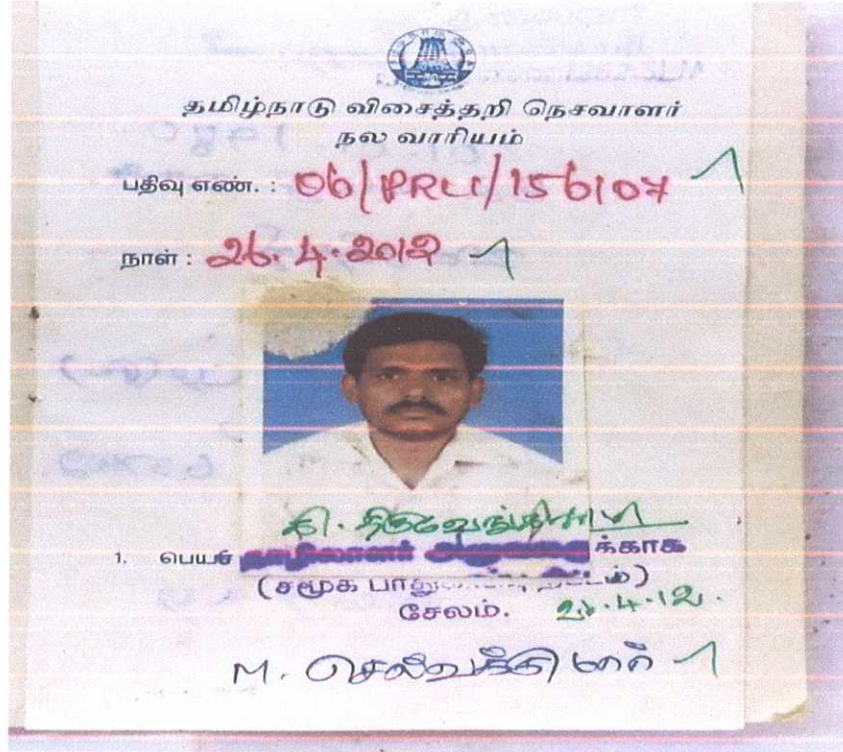 தமிழ்நாடு விசைத்தறி நெசவாளர்
நல வாரியம்
பதிவு எண். : 06/PRU/156107
நாள் : 26.4.2012
1. பெயர் க்காக
(சமூக பாது
சேலம். 26.4.12.
M. செல்வக்குமார்